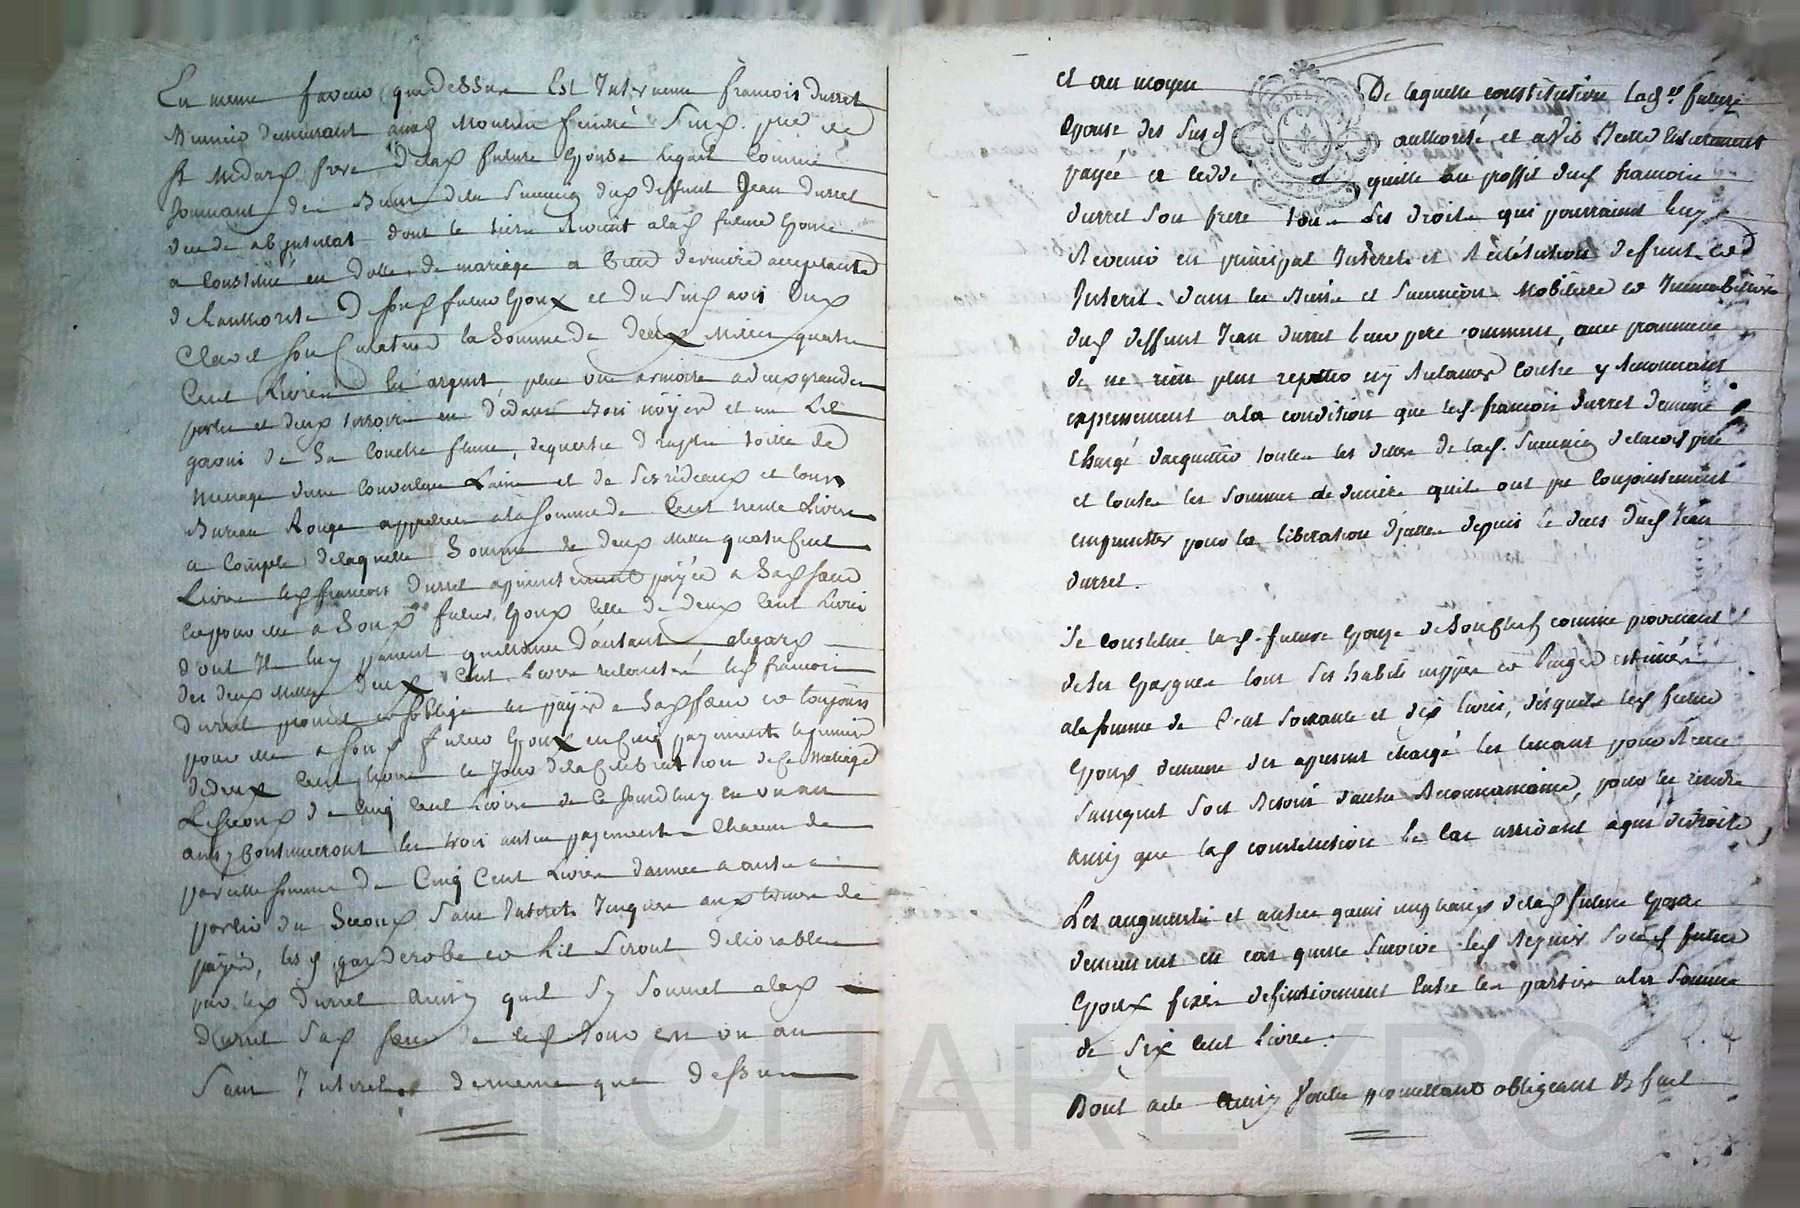 En meme faveur que dessus Est Intervenu francois durret
demeurant moulin St
St Medard frere de lad future Epouse lequel comme
Jouissant des Biens de la succession dud deffunt Jean durret
decedé abjntestat dont le tiers Revient a lad future Epouse
a Constitué en dotte de mariage a Elle acceptante
de lauthorité de sond futur Epoux et du susd avis dud
Clavel son Curateur la Somme de deux Mille quatre
Cent Livres En argent, plus une armoire a deux grandes
portes et deux tirroirs en dedans Bois noyer et un Lit
garni de Sa Coudre plume, toille de
menage dune couverture Laine et de Ses rideaux et tours
Bureau Rouge a la somme de Cent trente Livres
a Compte de laquelle Somme de deux mille quatre Cent
Livres led francois durret a payée a Sad Soeur
et pour elle a Sond futur Epoux Celle de deux Cent Livres
dont Ils luy passent quittance d'autant, a legard
des deux mille deux Cent Livres led francois
durret promet et soblige les payer a Sad Soeur et toujours
pour elle a Sond futur Epoux en Cinq payements le premier
de deux Cent Livres le Jour de la Celebration de Ce Mariage
Le Second de Cinq Cent Livres de Ce Jourdhuy en un an
ainsy Continueront les trois autres payements Chacun de
pareille somme de Cinq Cent Livres dannee a autre a
partir du Second Sans Interets Jusques aux termes de
payer, les d garderobe et Lit Seront delivrables
par led durret ainsy quil Sy Soumet a lad
durret Sad Soeur a led Jour en un an
Sans Interets. de meme que dessus
et au moyen De laquelle constitution lad future
Epouse des Susd authorité et avis
payée et cedde et quitte au proffit dud francois
durret Son frere tous Ses droits qui pourraient luy
Revenir en principal Interets et Restitution de fruits et
Interet dans les Biens et Succession Mobiliere et Immobiliere
dud deffunt Jean durret leur pere commun, avec promesse
de ne rien plus repetter ny Reclamer contre y Renonceant
expressement a la condition que led francois durret demeure
Chargé dacquitter toutes les dettes de lad. Succession
et toutes les Sommes de deniers quils ont pu Conjointement
emprunter pour la liberation djcelles depuis le deces dud Jean
durret.
Se constitue lad. future Epouse de Son Chef comme provenant
de Ses Epargnes tous Ses habits nippes et linges estimés
a la somme de Cent Soixante et dix livres, desquels led futur
Epoux demeure des a present chargé les tenant pour Receus
Sans quil Soit Besoin dautre Reconnoissance, pour les rendre
ainsy que lad constitution le Cas arrivant a qui de droit,
Les augments et autres gains nuptiaux de lad future Epouse
demeurent en cas quelle Survive led Regnier Sond futur
Epoux fixés definitivement Entre les parties a la Somme
de Six Cent Livres.
Dont acte ainsy Voulu promettant obligeant &amp; fait